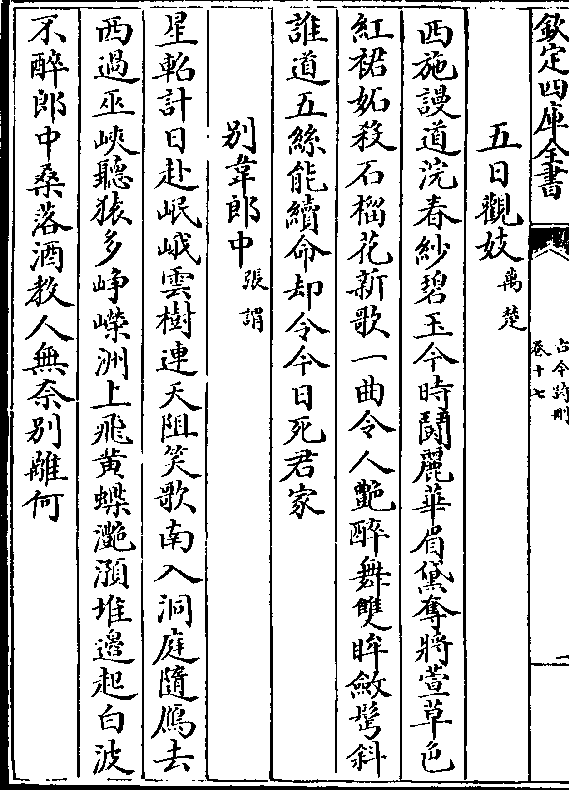 欽定四庫全書
古今詩刪
卷十七
五日觀妓 萬楚
西施謾道浣春紗碧玉今時鬭麗華眉黛奪將萱草色
紅裙妬殺石榴花新歌一曲令人艷醉舞雙眸斂鬂斜
誰道五絲能續命却令今日死君家
别韋郎中 張謂
星軺計日赴岷峨雲樹連天阻笑歌南入洞庭隨鴈去
西過巫峽聽猿多崢嶸洲上飛黄蝶灔澦堆邊起白波
不醉郎中桑落酒教人無奈别離何